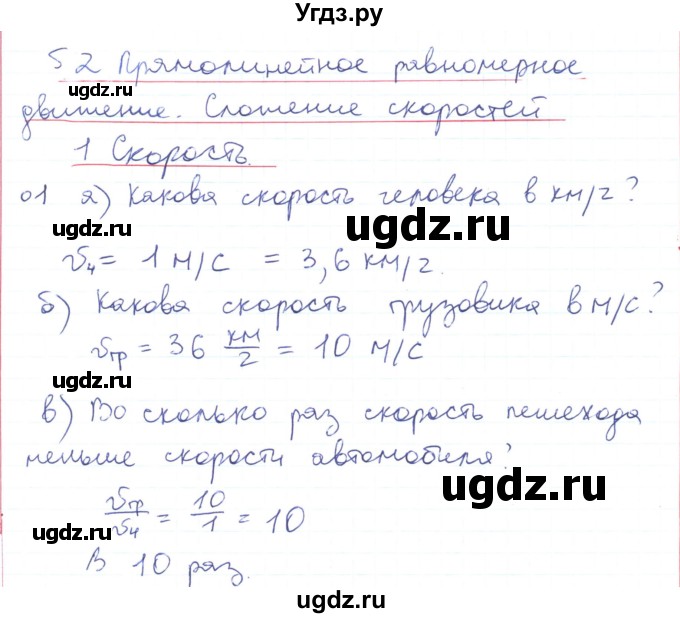 Угдз.ру
§2 Прямолинейное равномерное
ugdz.ru
движение. Сложение скоростей
1 Скорость.
01 а) Какова скорость человека в км/ч?
ugdz.ru
ugdz.ru
vч = 1 м/с = 3,6 км/ч.
б) Какова скорость грузовика в м/с?
vгр = 36 км/ч = 10 м/с
ugdz.ru
в) Во сколько раз скорость пешехода
ugdz.ru
меньше скорости автомобиля?
ugdz.ru
vгр/vч = 10/1 = 10
ugdz.ru
В 10 раз.
ugdz.ru